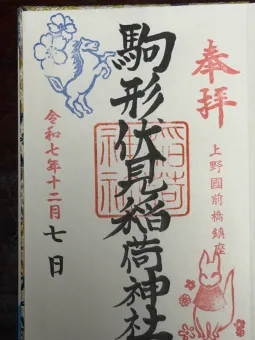 奉拝
上野國前橋鎮座
駒形伏見稲荷神社
稲荷神社
令和七年十二月七日